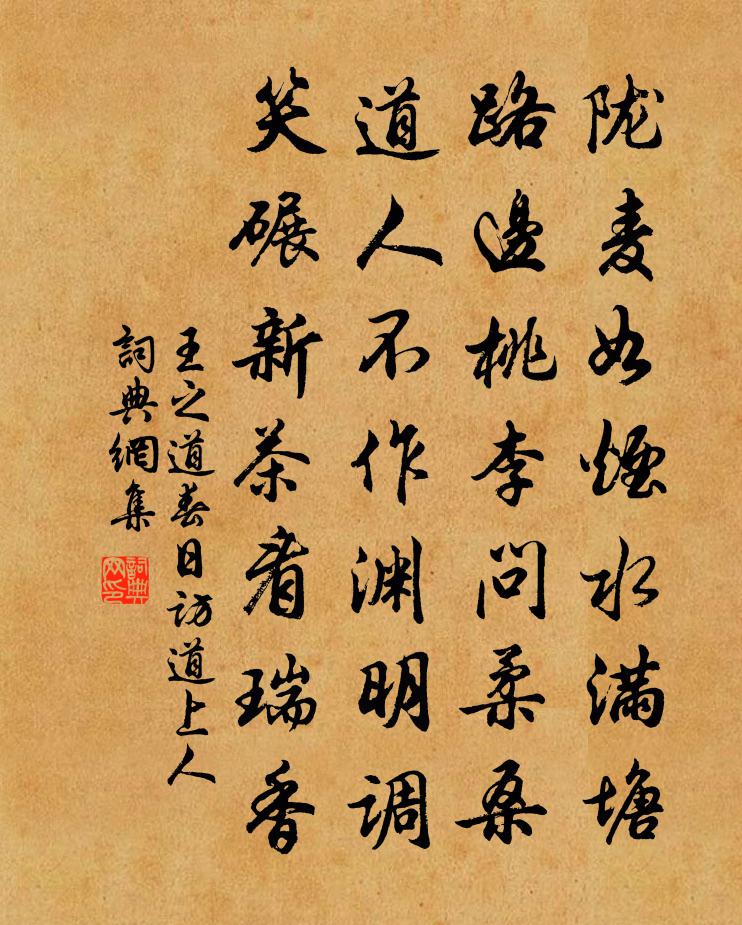 陇麦如烟水满塘
路邊桃李问柔桑
道人不作渊明调
笑碾新茶看瑞香
王之道春日访道上人
詞典網集
詞典网印